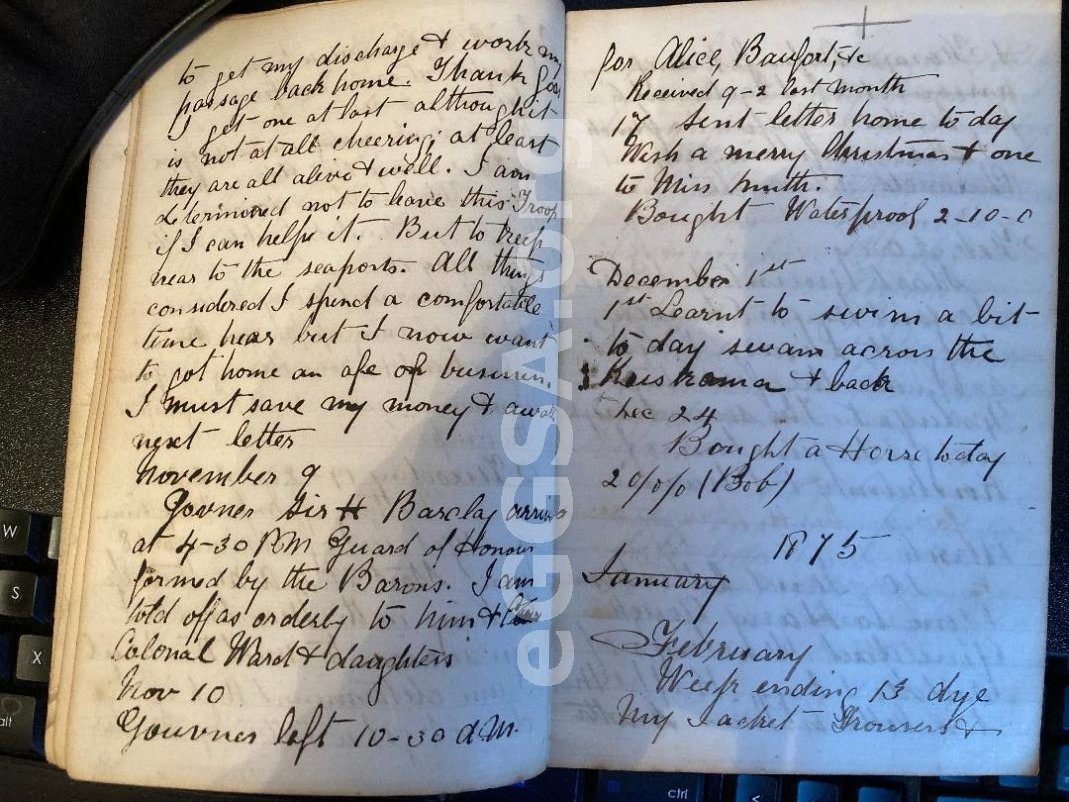 to get my discharge & work my
passage back home. Thank God
I get one at last although it
is not at all cheering; at least
they are all alive & well. I am
determined not to leave this Troop
if I can helpe it. But to keep
near to the seaports. All things
considered I spend a comfortable
time hear but I now want
to got home an afe of business.
I must save my money & await
next letter
November 9
Govner Sir H Barclay arrived
at 4-30 P.M Guard of Honour
formed by the Barons. I am
told off as orderly to him &
Colonal Ward & daughters
Nov 10
Gouvner left 10-30 A.M.
for Alice, Baufort, &c
Received 9-2 last month
17 Sent letter home to day
Wish a merry Christmas & one
to Miss Smith.
Bought Waterproof 2-10-0
December 1st
1st Learnt to swim a bit
to day swam across the
Keiskama & back
Dec 24
Bought a Horse today
20/0/0 (Bob)
1875
January
February
Week ending 13 dye
My Jacket Trousers &
eGGSA.org
W
S
X
alt
ctrl